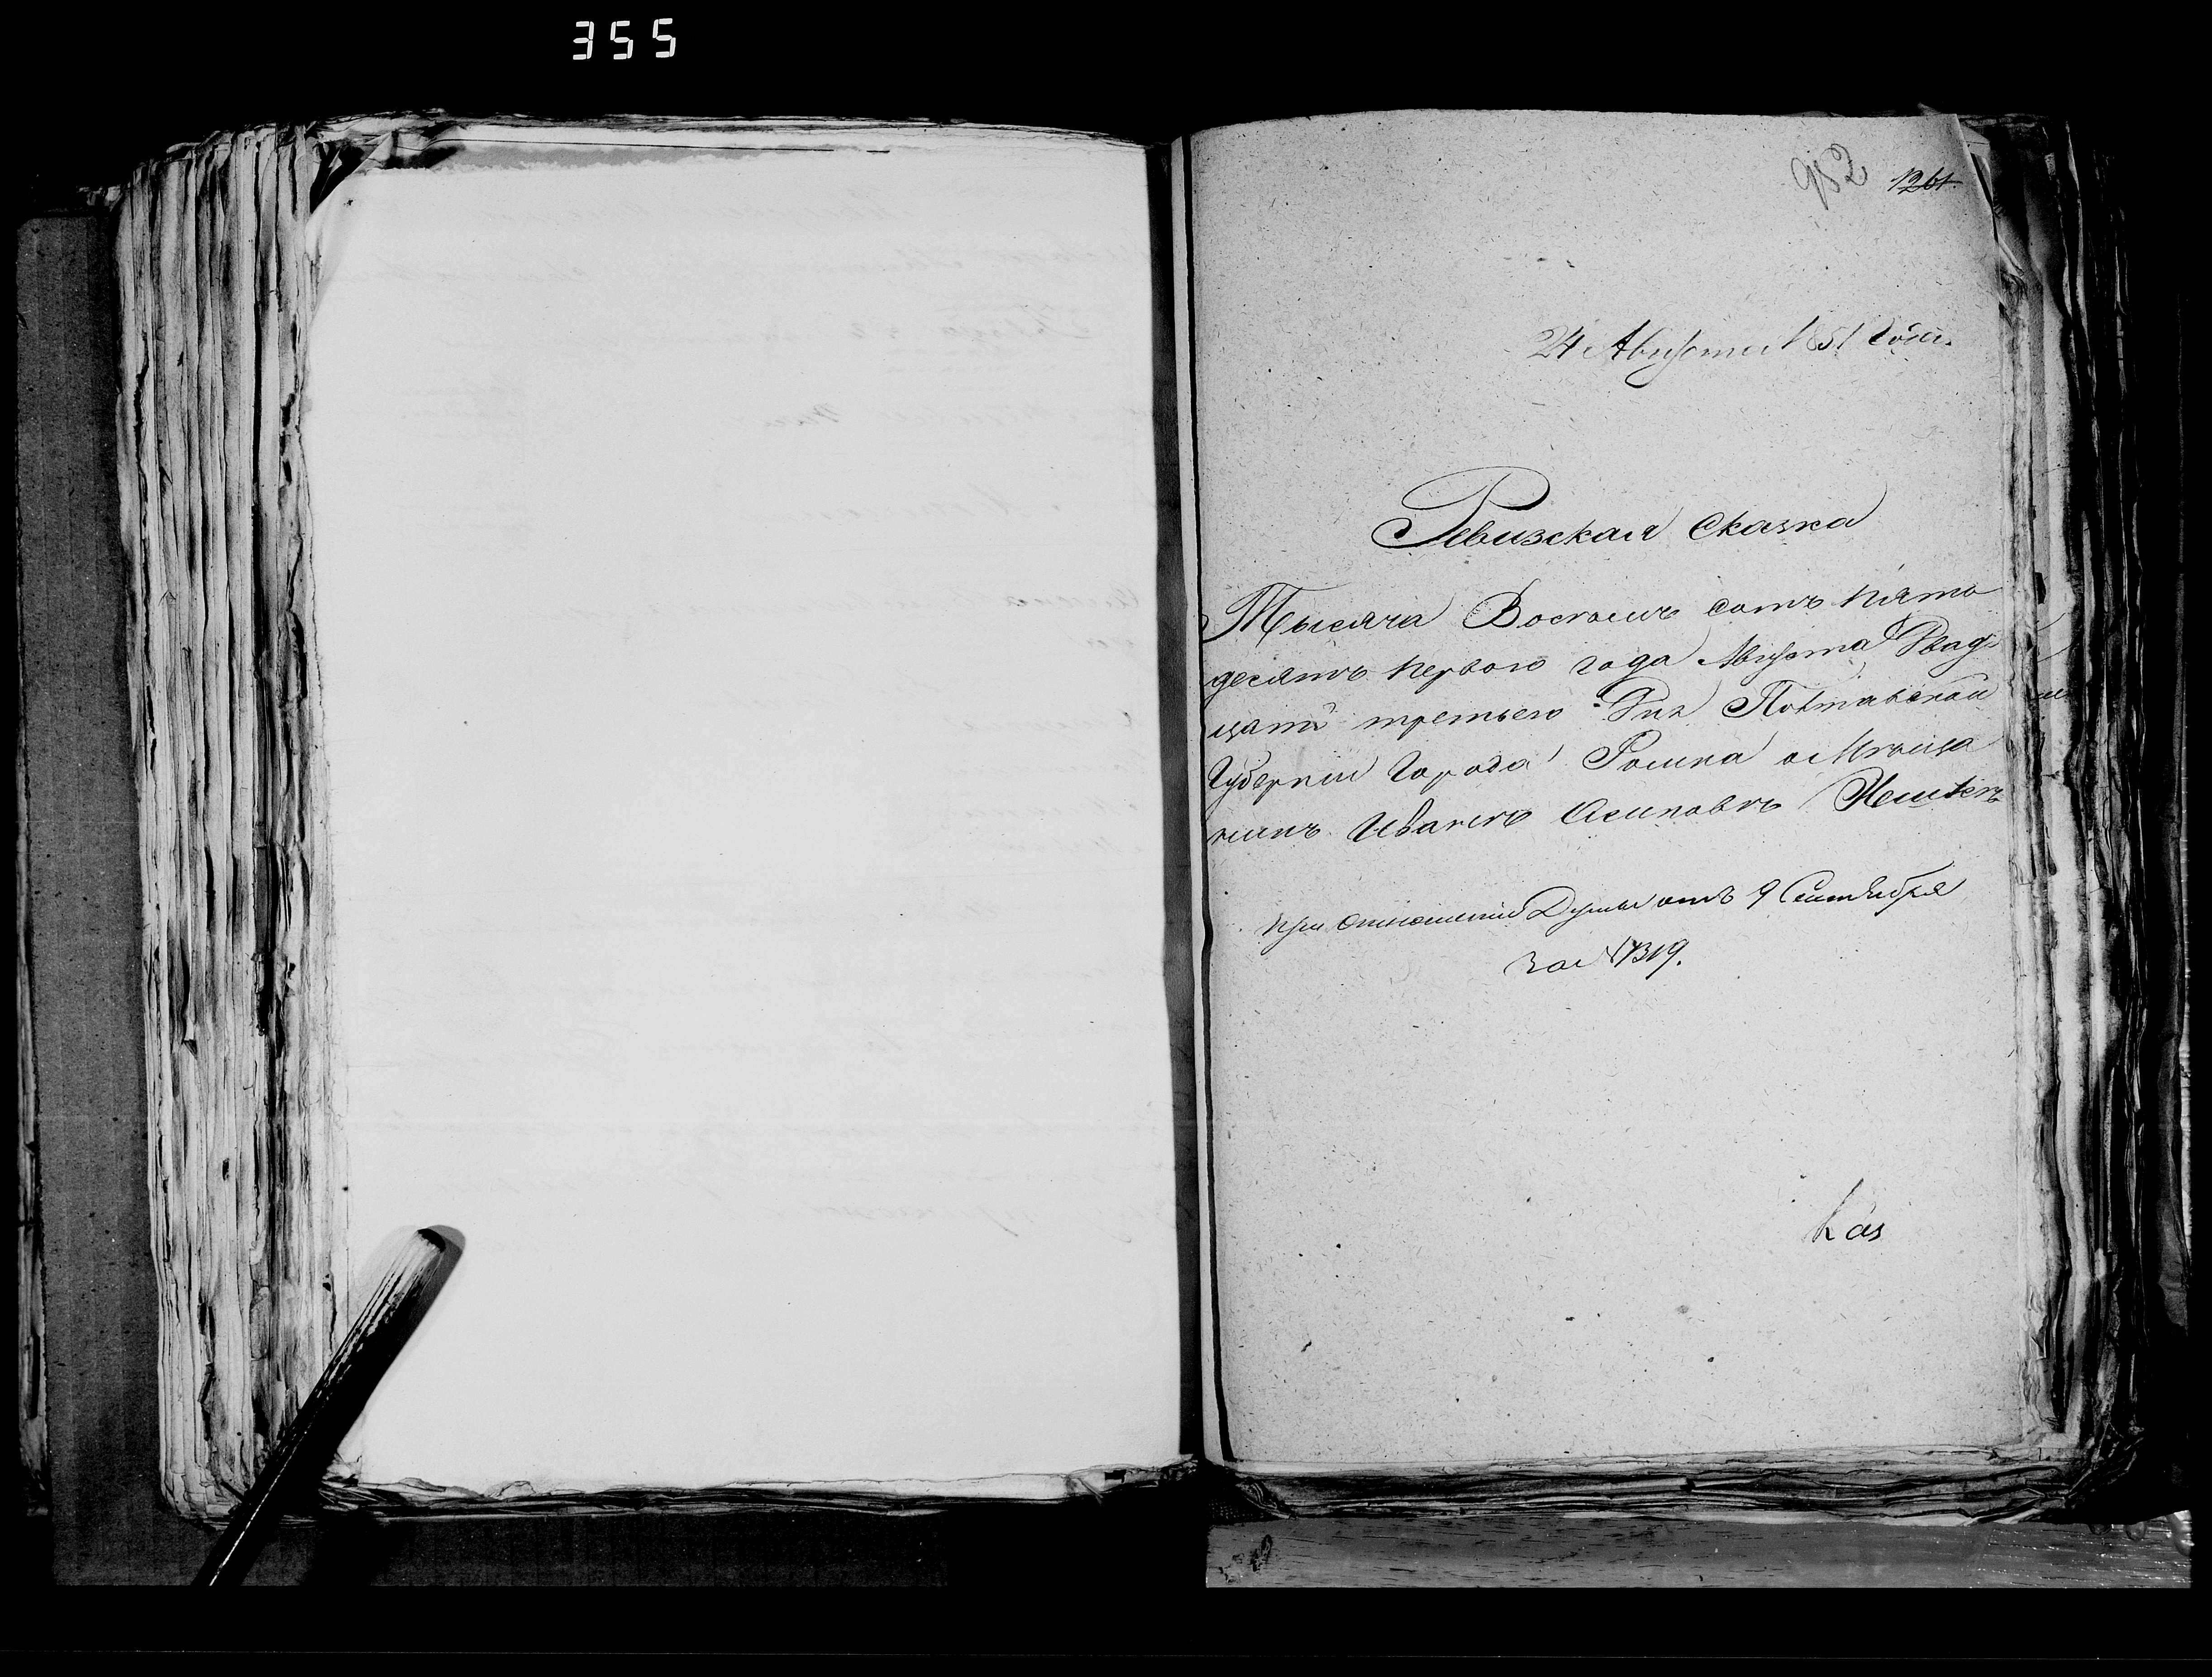 355
982 1261
24 Августа 1851 года.
Ревизская Сказка
Тысяча Восемь сотъ пять
десятъ перваго года Августа Двад
цать третьего Дня Полтавской
Губерніи Города Ромна о Мѣща
нинѣ Иванѣ Осиповѣ
при отношеніи Думы отъ 9 Сентября
за № 1319.